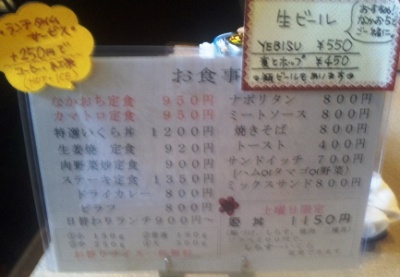 ランチタイム
サービス
+250円で
コーヒー・紅茶
(HOT・ICE)
生ビール
YEBISU ¥550
麦とホップ ¥450
☆瓶ビールもあります☆
おすすめ!
なかおちと
ご一緒に
お食事
なかおち定食 950円
カマトロ定食 950円
特選いくら丼 1200円
生姜焼 定食 920円
肉野菜炒定食 900円
ステーキ定食 1350円
ドライカレー 800円
ピラフ 800円
日替わりランチ 900円〜
ナポリタン 800円
ミートソース 800円
焼きそば 800円
トースト 400円
サンドイッチ 700円
(ハムorタマゴor野菜)
ミックスサンド 800円
土曜日限定
丼 1150円